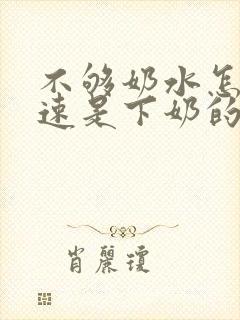 不够奶水怎
速是下奶的
肖丽琼